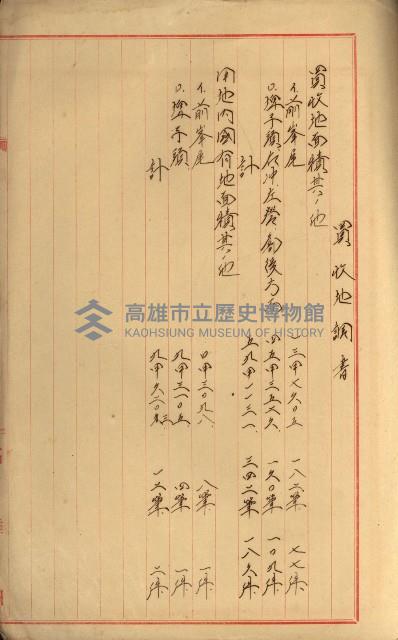 買收地調書
買收地面積其ノ他
イ.前峯尾 一三甲七六〇五 一八二筆 七七件
ロ.埤子頭、左冲、左營、廍後方面 四五甲三五二六 一六〇筆 一〇九件
計 五九甲一一三一 三四二筆 一八六件
用地内國有地面積其ノ他
イ.前峯尾 〇甲三〇九八 八筆 一件
ロ.埤子頭 九甲三一〇五 四筆 一件
計 九甲六二〇三 一二筆 二件
高雄市立歷史博物館
KAOHSIUNG MUSEUM OF HISTORY